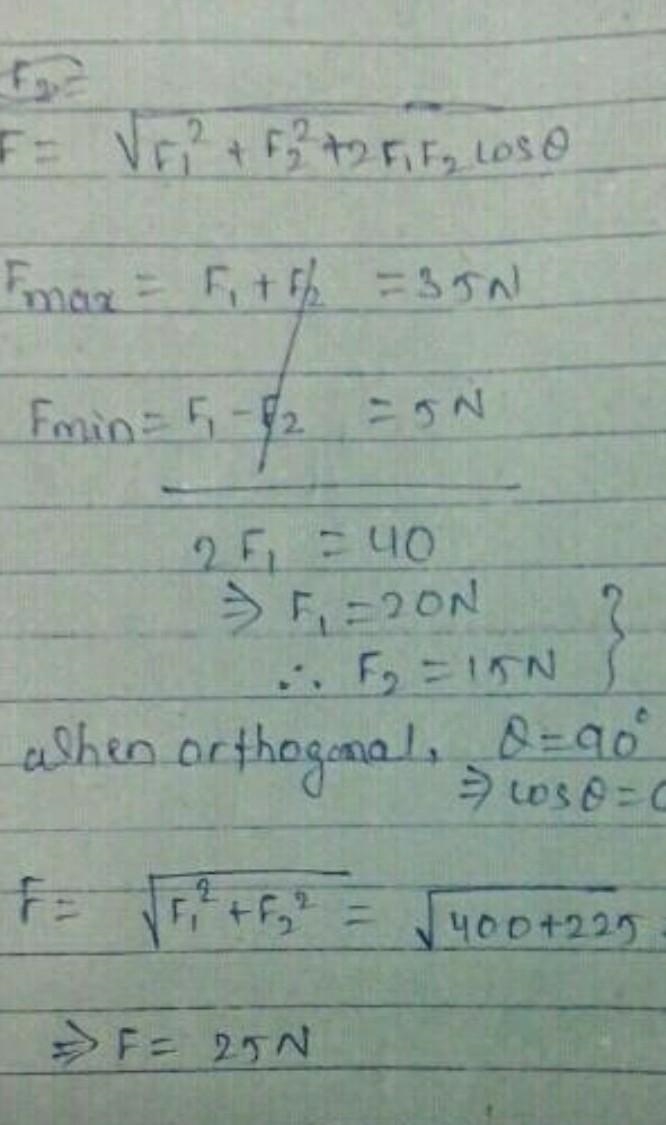 F₂ =
F = √F₁² + F₂² + 2F₁F₂ cosθ
Fmax = F₁ + F₂ = 35N
Fmin = F₁ - F₂ = 5N
2F₁ = 40
⇒ F₁ = 20N }
∴ F₂ = 15N
when orthogonal, θ = 90°
⇒ cosθ = 0
F = √F₁² + F₂² = √400+225
⇒ F = 25N